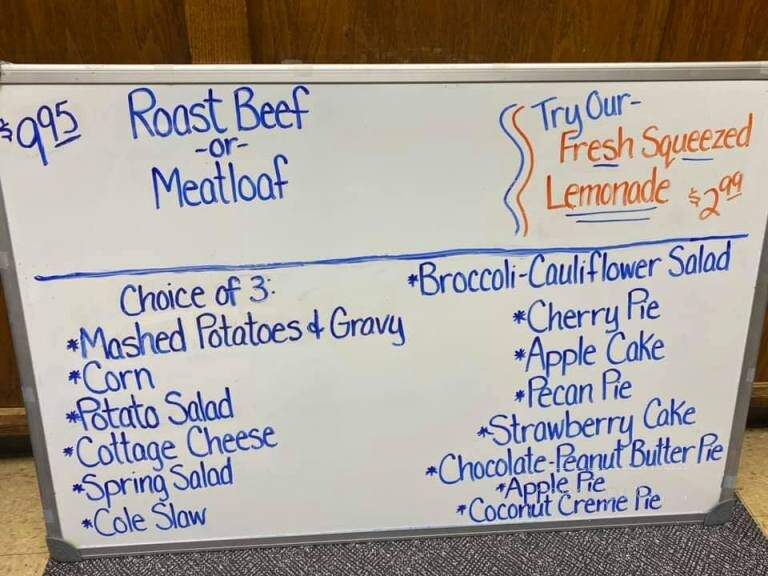 $9.95 Roast Beef
-or-
Meatloaf
Try Our-
Fresh Squeezed
Lemonade $2.99
Choice of 3:
*Mashed Potatoes & Gravy
*Corn
*Potato Salad
*Cottage Cheese
*Spring Salad
*Cole Slaw
*Broccoli-Cauliflower Salad
*Cherry Pie
*Apple Cake
*Pecan Pie
*Strawberry Cake
*Chocolate-Peanut Butter Pie
*Apple Pie
*Coconut Creme Pie